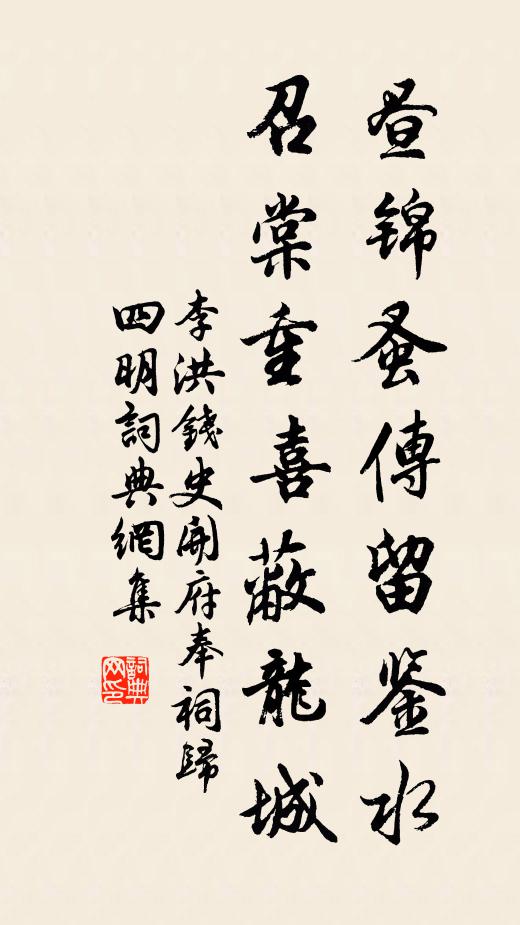 昼錦蚤傳留鉴水
召棠重喜蔽龍城
李洪錢史開府奉祠歸
四明詞典網集
詞典网印